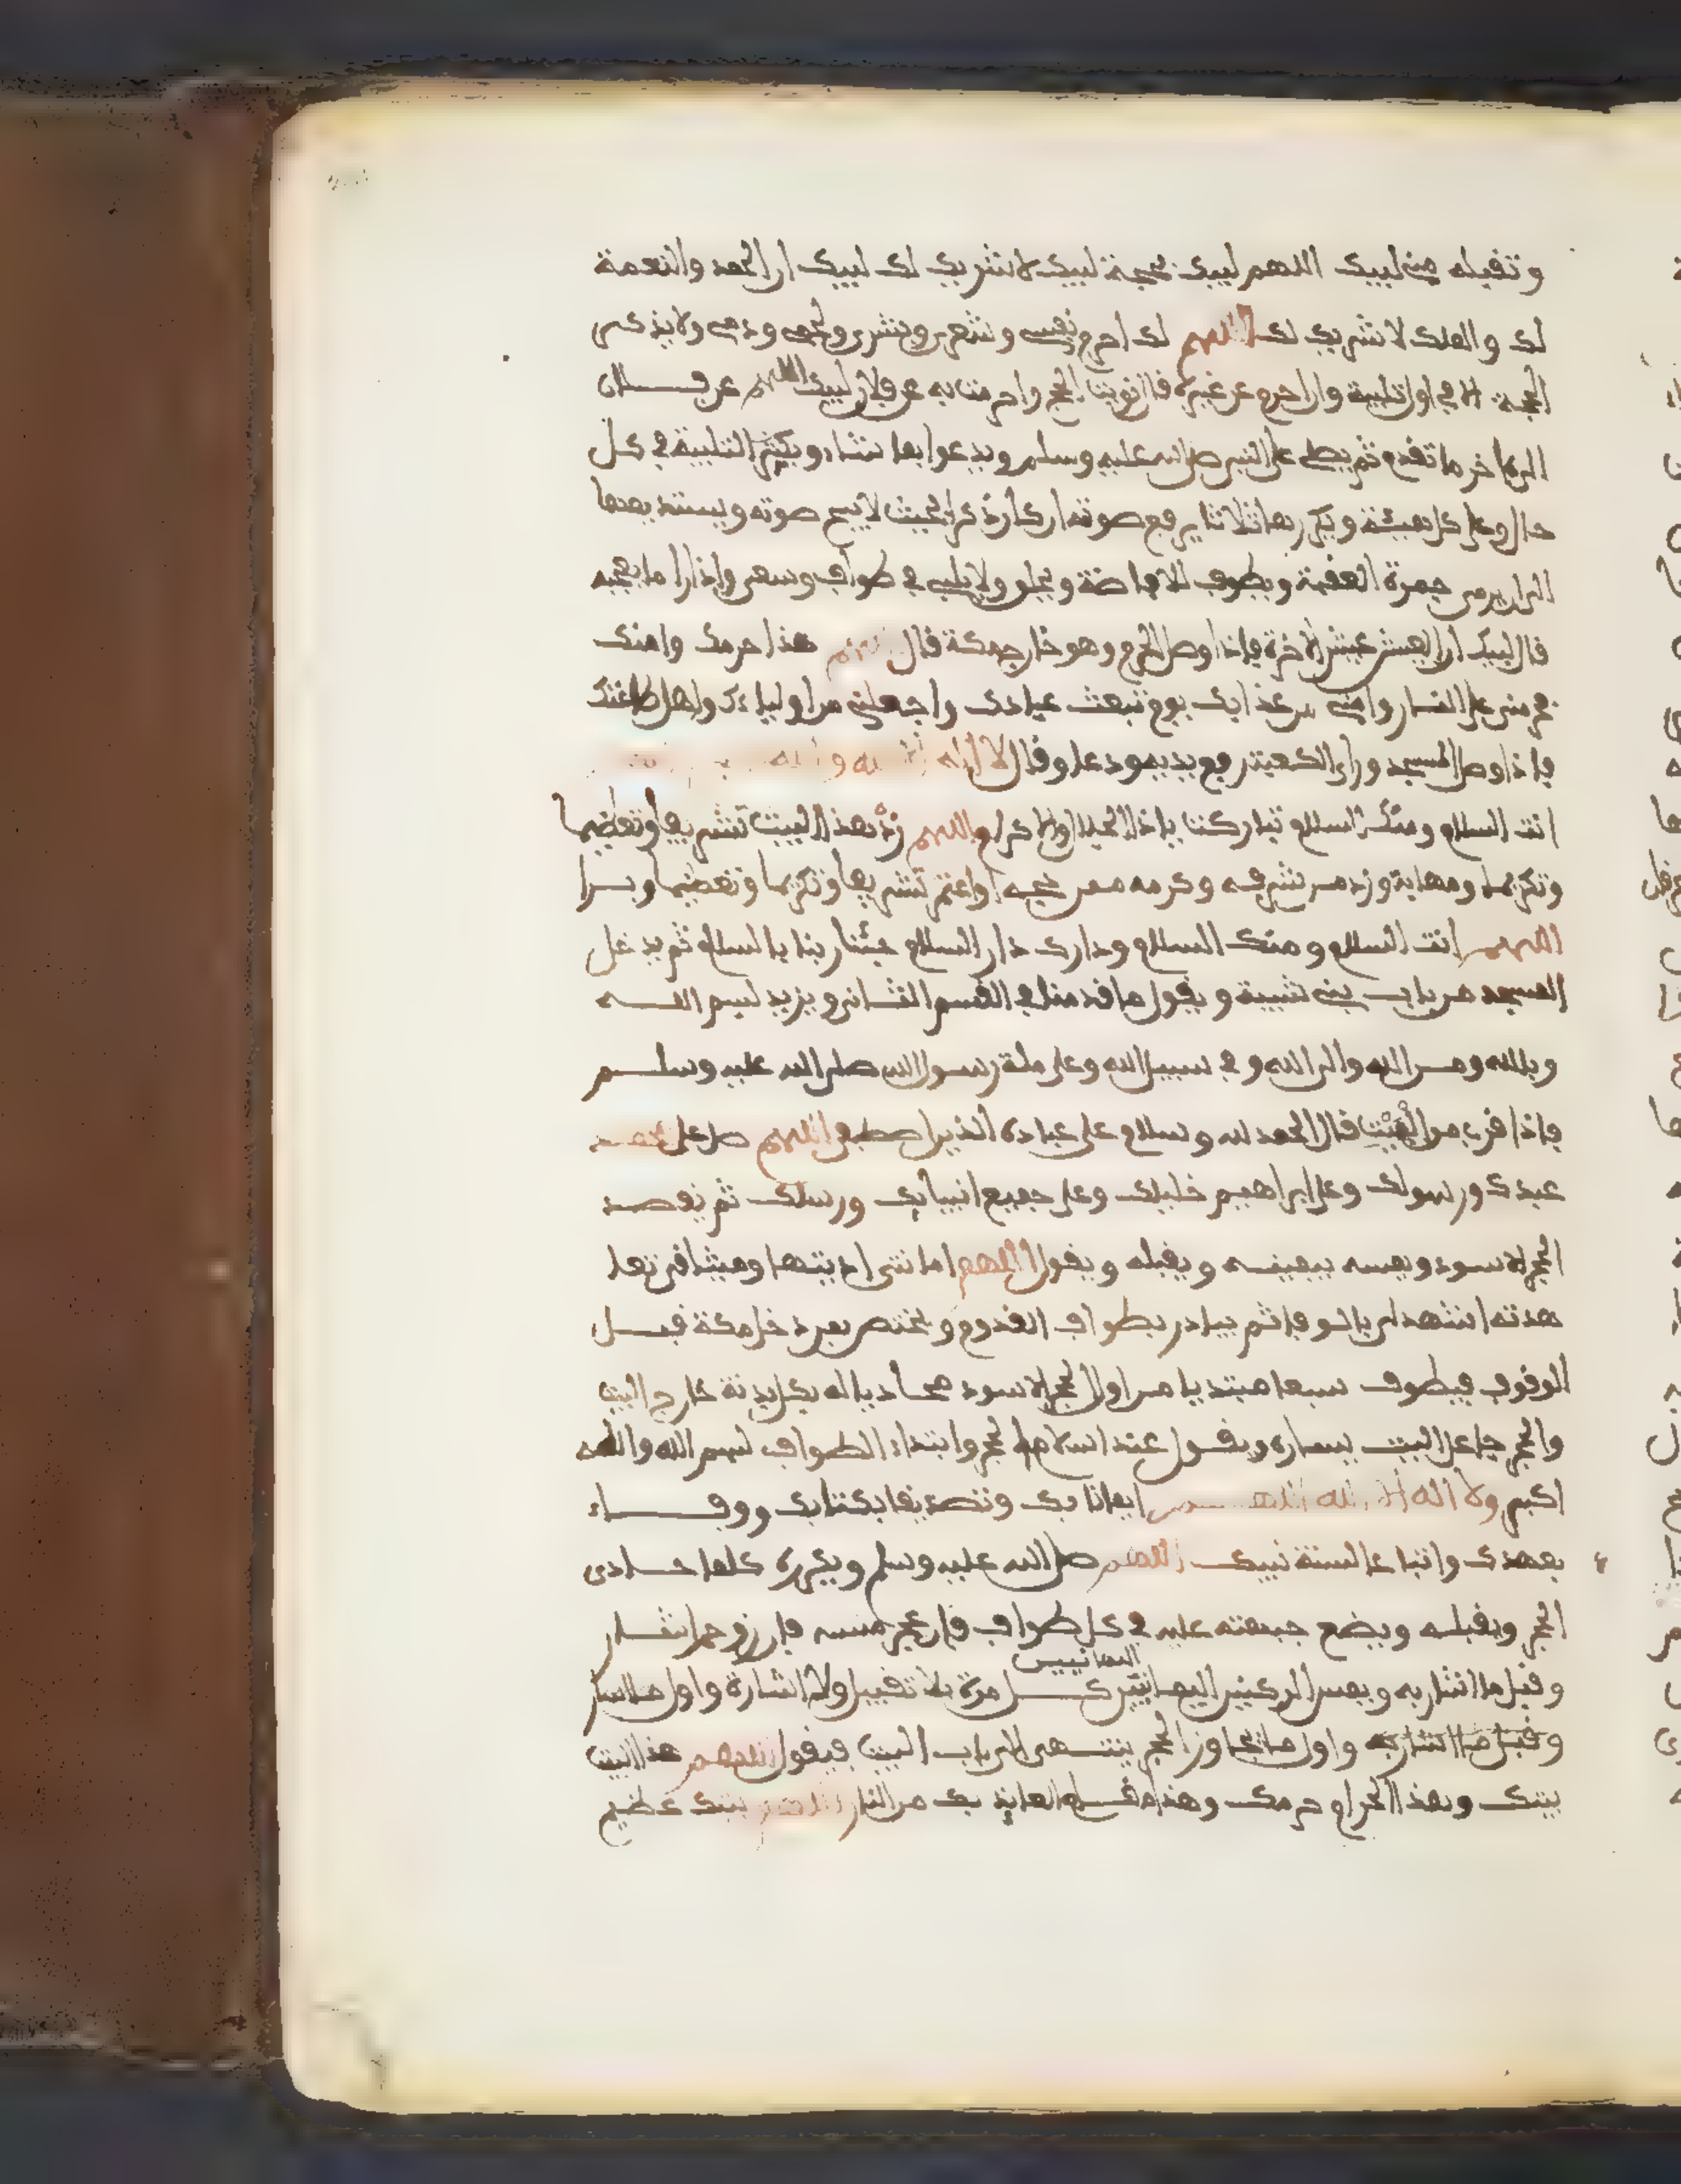 وتقبله مني لبيك اللهم لبيك بحجة لبيك لا شريك لك لبيك ان الحمد والنعمة
لك والملك لا شريك لك اللهم لك احرم نفسي وشعري وبشري ولحمي ودمي ولا يذكر
الحجة الا في اول تلبية وان احرم عن غيره قال نويت الحج واحرمت به عن فلان لبيك اللهم عن فلان
الى اخر ما تقدم ثم يصلي على النبي صلى الله عليه وسلم ويدعوا بما شاء ويكثر التلبية في كل
حال وعلى كل هيئة ويكررها ثلاثا يرفع صوته ان كان ذكرا بحيث لا يبح صوته ويستديمها
الى ان يرمي جمرة العقبة ويطوف للافاضة ويحلق ولا يلبي في طواف وسعي واذا راى ما يعجبه
قال لبيك ان العيش عيش الاخرة فاذا وصل الحرم وهو خارج مكة قال اللهم هذا حرمك وامنك
فحرمني على النار وامني من عذابك يوم تبعث عبادك واجعلني من اولياءك واهل طاعتك
فاذا وصل المسجد وراى الكعبة رفع يديه ودعا وقال لا اله الا الله والله
انت السلام ومنك السلام تباركت ياذا الجلال والاكرام اللهم زد هذا البيت تشريفا وتعظيما
وتكريما ومهابة وزد من شرفه وكرمه ممن حجه او اعتمر تشريفا وتكريما وتعظيما وبرا
اللهم انت السلام ومنك السلام ودارك دار السلام حينا ربنا بالسلام ثم يدخل
المسجد من باب بني شيبة ويقول ما قدمنا في القسم الثاني ويزيد بسم الله
وبالله ومن الله والى الله وفي سبيل الله وعلى ملة رسول الله صلى الله عليه وسلم
فاذا قرب من البيت قال الحمد لله وسلام على عباده الذين اصطفى اللهم صل على محمد
عبدك ورسولك وعلى ابراهيم خليلك وعلى جميع انبيائك ورسلك ثم يقصد
الحجر الاسود ويمسه بيمينه ويقبله ويقول اللهم امانتي اديتها وميثاقي تعا
هدته اشهد لي بالوفا ثم يبادر بطواف القدوم ويختص بمن دخل مكة قبل
الوقوف فيطوف سبعا مبتديا من اول الحجر الاسود محاديا له بكل بدنه خارج البيت
والحجر جاعل البيت يساره ويقول عند استلام الحجر وابتداء الطواف بسم الله والله
اكبر ولا اله الا الله اللهم ايمانا بك وتصديقا بكتابك ووفاء
بعهدك واتباعا لسنة نبيك اللهم صلى الله عليه وسلم ويكرره كلما حادى
الحجر ويقبله ويضع جبهته عليه في كل طواف فان عجز مسه فان زوحم اشار
اليمانيين
وقبل ما اشار به ويمس الركنين اليمانيين كل مرة بلا تقبيل ولا اشارة واول
وقبل ما اشار به واول ما يجاوز الحجر ينتهى الى باب البيت فيقول اللهم هذا البيت
بيتك وهذا الحرام حرمك وهذا مقام العايذ بك من النار اللهم بيتك عظيم